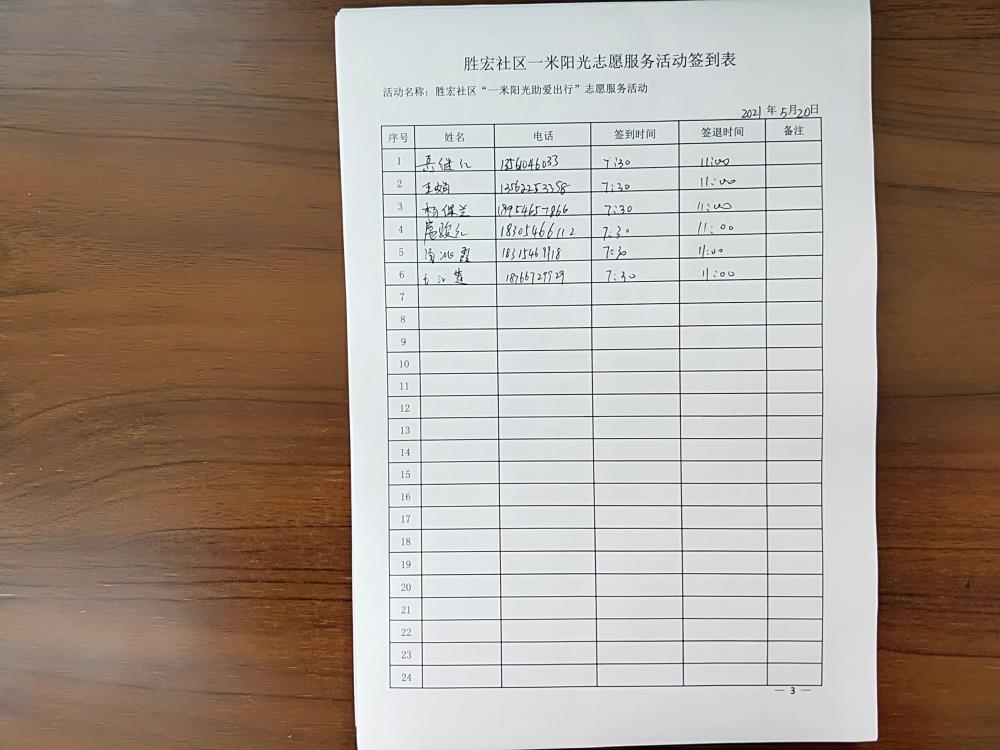 胜宏社区一米阳光志愿服务活动签到表
活动名称：胜宏社区“一米阳光助爱出行”志愿服务活动
2021年5月20日
序号 姓名 电话 签到时间 签退时间 备注
1 7:30 11:00
2 王娟 13562253398 7:30 11:00
3 杨保兰 18954657866 7:30 11:00
4 18305466112 7:30 11:00
5 冯冰霞 18315469918 7:30 11:00
6 18766729929 7:30 11:00
7
8
9
10
11
12
13
14
15
16
17
18
19
20
21
22
23
24
— 3 —